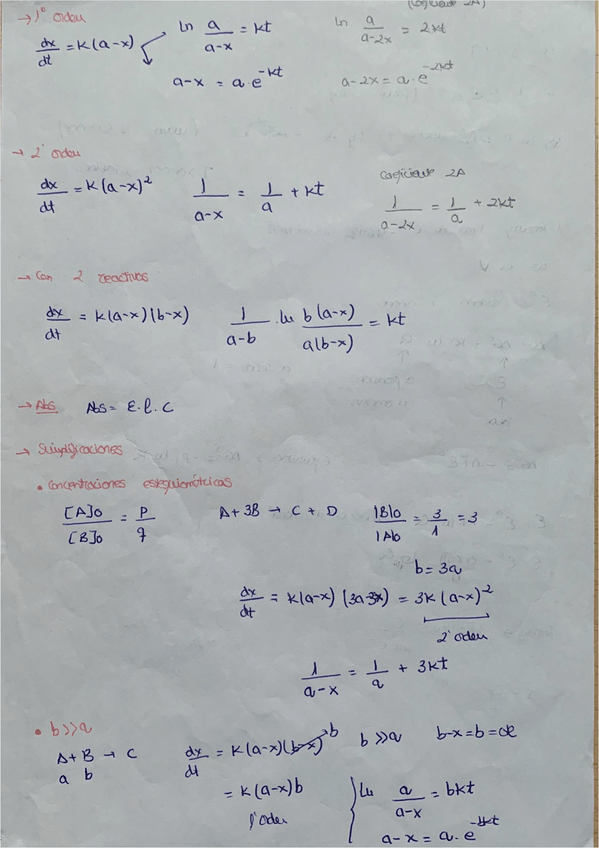 → 1º orden
(Coeficiente 2A)
dx/dt = K(a-x)
ln a/(a-x) = kt
ln a/(a-2x) = 2kt
a-x = a·e^-kt
a-2x = a·e^-2kt
→ 2º orden
dx/dt = K(a-x)²
1/(a-x) = 1/a + kt
Coeficiente 2A
1/(a-2x) = 1/a + 2kt
→ Con 2 reactivos
dx/dt = K(a-x)(b-x)
1/(a-b) · ln b(a-x)/a(b-x) = kt
→ Abs Abs = ε.l.C
→ Simplificaciones
• Concentraciones estequiométricas
[A]0/[B]0 = p/q
A + 3B → C + D
[B]0/[A]0 = 3/1 = 3
b = 3a
dx/dt = k(a-x)(3a-3x) = 3k(a-x)^2
2º orden
1/(a-x) = 1/a + 3kt
• b>>a
A + B → C
a b
dx/dt = K(a-x)(b-x) b
b >> a
b-x = b = cte
= K(a-x)b
1º orden
ln a/(a-x) = bkt
a-x = a·e^-bkt